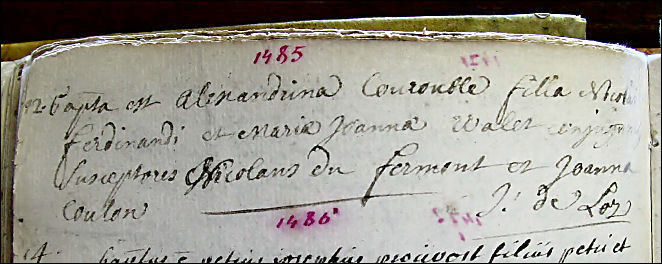 1485
12. bapta est Alexandrina Courouble filia Nicolai
ferdinandi et Maria Joanna Walet conjugum
Susceptores Nicolaus du fermont et Joanna
Coulon
J. de Loz
1486
14. petrus josephus prouvost filius petri et